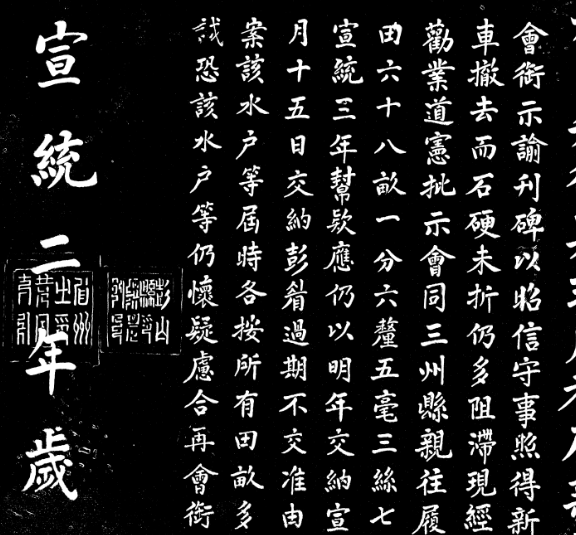 會銜示諭刊碑以昭信守事照得新
車撤去而石硬未折仍多阻滯現經
勸業道憲批示會同三州縣親往履
田六十八畝一分六釐五毫三絲七
宣統三年幫欵應仍以明年交納宣
月十五日交納彭眷過期不交准由
案該水户等屆時各按所有田畝多
誠恐該水户等仍懷疑慮合再會銜
宣統二年歲